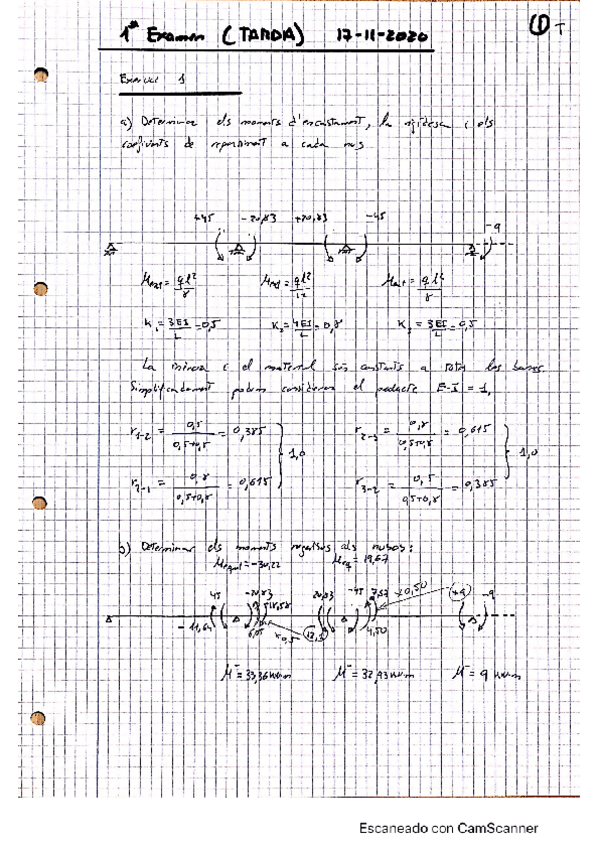 1ª Examen (TARDA) 17-11-2020
① T
Exercici 1
a) Determinar els moments d'encastament, la rigidesa i els
coeficients de repartiment a cada nus
+45 -20,83 +20,83 -45 -9
M = ql²/8 M = ql²/12 M = ql²/8
K₁ = 3EI/L = 0,5 K₂ = 4EI/L = 0,8 K₃ = 3EI/L = 0,5
La inèrcia i el material són constants a totes les barres.
Simplificadament podem considerar el producte E·I = 1.
r₁₋₂ = 0,5/(0,5+0,8) = 0,385 r₂₋₃ = 0,8/(0,5+0,8) = 0,615
1,0 1,0
= 0,8/(0,5+0,8) = 0,615 r₃₋₂ = 0,5/(0,5+0,8) = 0,385
b) Determinar els moments negatius als nusos:
= -30,22 = 19,67
45 -20,83 18,58 20,83 -45 7,57 x0,50 +9 -9
-11,64 6,05 x0,5 12,1 4,50
M⁻ = 33,36 kN·m M⁻ = 32,93 kN·m M⁻ = 9 kN·m
Escaneado con CamScanner